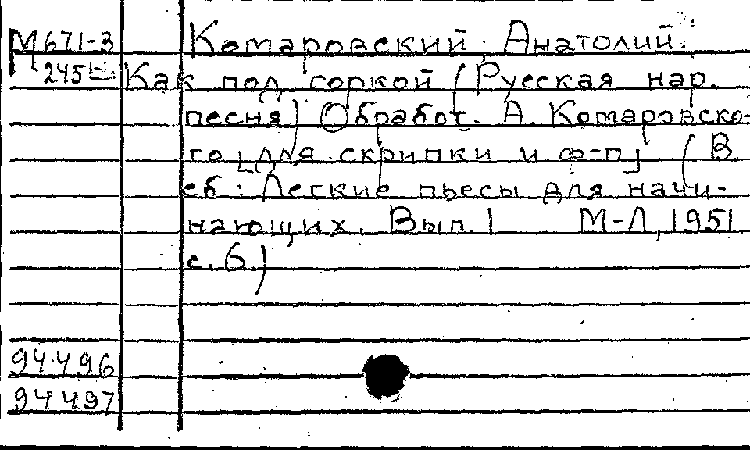 М 671-3 Комаровский, Анатолий.
245 Как под горкой (Русская нар.
песня) Обработ. А. Комаровско-
го [для скрипки и ф-п] (В
сб: Легкие пьесы для начи-
нающих. Вып. 1 М-Л, 1951
с. 6.)
94496
94497